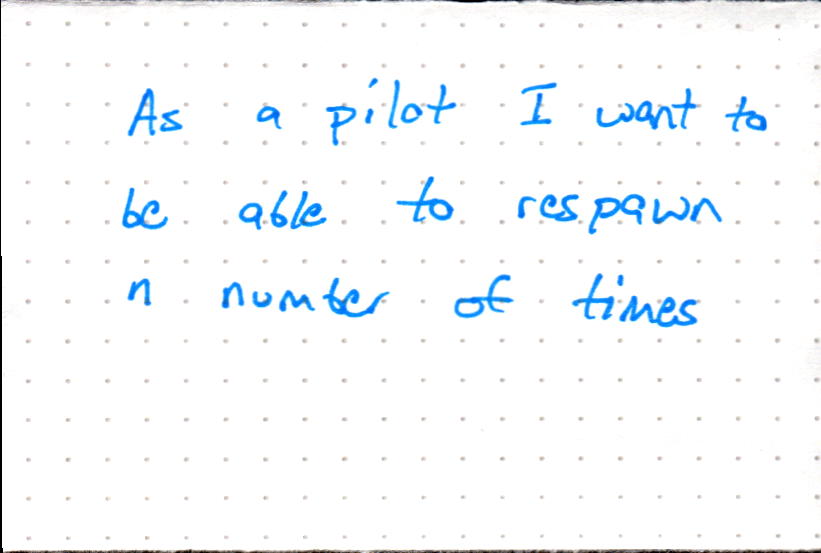 As a pilot I want to
be able to respawn
n number of times